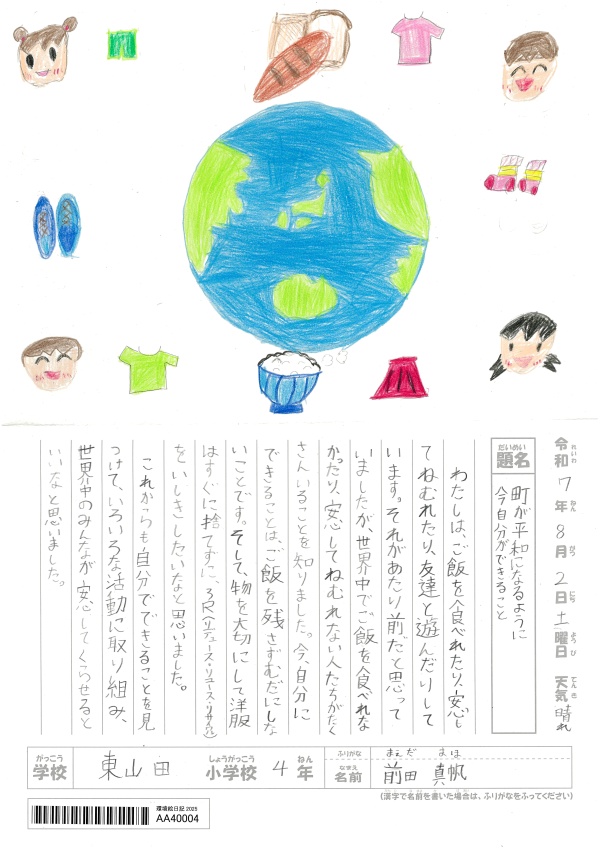 令和7年8月2日土曜日 天気 晴れ
れいわ ねん がつ にち ようび てんき
だいめい
題名
町が平和になるように
今自分ができること
わたしは、ご飯を食べれたり、安心し
てねむれたり、友達と遊んだりして
います。それがあたり前だと思って
いましたが、世界中でご飯を食べれな
かったり、安心してねむれない人たちがたく
さんいることを知りました。今、自分に
できることは、ご飯を残さずむだにしな
いことです。そして、物を大切にして洋服
はすぐに捨てずに、3R(リデュース・リユース・リサイクル)
をいしきしたいなと思いました。
これからも自分でできることを見
つけて、いろいろな活動に取り組み、
世界中のみんなが安心してくらせると
いいなと思いました。
がっこう しょうがっこう ねん
学校 東山田 小学校 4年
ふりがな まえだ まほ
なまえ
名前 前田 真帆
(漢字で名前を書いた場合は、ふりがなをふってください)
環境絵日記 2025
AA40004